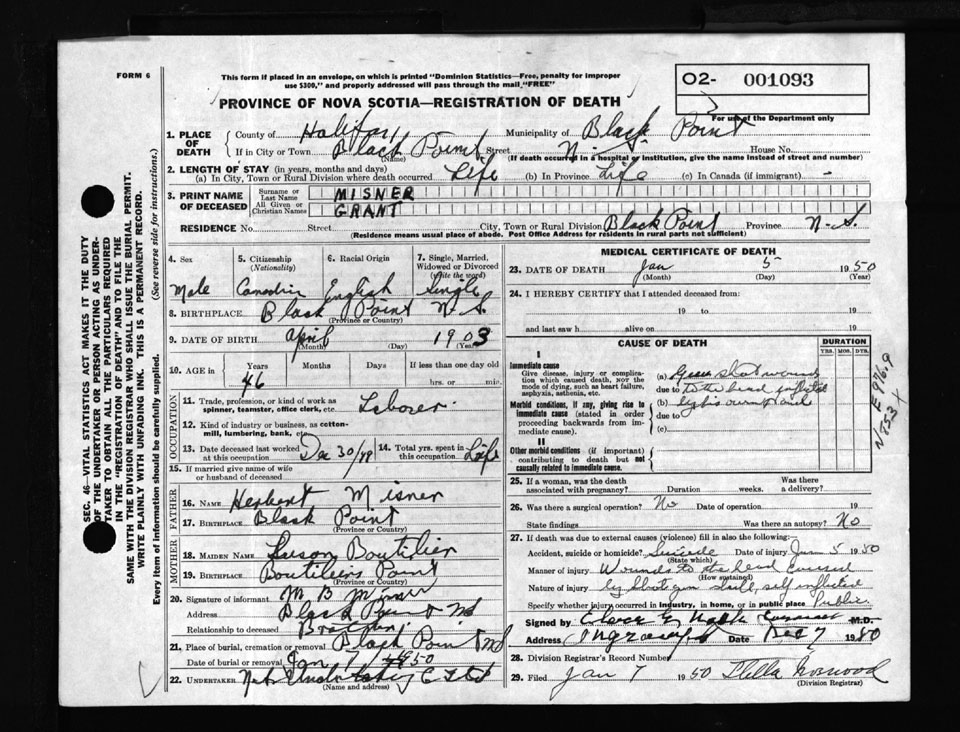 FORM 6
This form if placed in an envelope, on which is printed "Dominion Statistics—Free, penalty for improper
use $300," and properly addressed will pass through the mail "FREE"
O2- 001093
For use of the Department only
PROVINCE OF NOVA SCOTIA—REGISTRATION OF DEATH
1. PLACE OF DEATH
County of Halifax Municipality of Black Point
If in City or Town Black Point Street N.S. House No.
(Name) (If death occurred in a hospital or institution, give the name instead of street and number)
2. LENGTH OF STAY (in years, months and days)
(a) In City, Town or Rural Division where death occurred Life (b) In Province Life (c) In Canada (if immigrant) -
3. PRINT NAME OF DECEASED
Surname or Last Name MISNER
All Given or Christian Names GRANT
RESIDENCE No. Street City, Town or Rural Division Black Point Province N-S.
(Residence means usual place of abode. Post Office Address for residents in rural parts not sufficient)
SEC. 46—VITAL STATISTICS ACT MAKES IT THE DUTY
OF THE UNDERTAKER OR PERSON ACTING AS UNDER-
TAKER TO OBTAIN ALL THE PARTICULARS REQUIRED
IN THE "REGISTRATION OF DEATH" AND TO FILE THE
SAME WITH THE DIVISION REGISTRAR WHO SHALL ISSUE THE BURIAL PERMIT.
WRITE PLAINLY WITH UNFADING INK. THIS IS A PERMANENT RECORD.
Every item of information should be carefully supplied. (See reverse side for instructions.)
4. Sex Male
5. Citizenship (Nationality) Canadian
6. Racial Origin English
7. Single, Married, Widowed or Divorced (Write the word) Single
8. BIRTHPLACE Black Point N.S.
(Province or Country)
9. DATE OF BIRTH April 1903
(Month) (Day) (Year)
10. AGE in Years Months Days If less than one day old
46 hrs. or min.
OCCUPATION
11. Trade, profession, or kind of work as
spinner, teamster, office clerk, etc. Laborer
12. Kind of industry or business, as cotton-
mill, lumbering, bank, etc.
13. Date deceased last worked at this occupation Dec 30/49
14. Total yrs. spent in this occupation Life
15. If married give name of wife
or husband of deceased
FATHER
16. NAME Herbert Misner
17. BIRTHPLACE Black Point
(Province or Country)
MOTHER
18. MAIDEN NAME Susan Boutilier
19. BIRTHPLACE Boutiliers Point
(Province or Country)
20. Signature of informant M B Misner
Address Black Point NS
Relationship to deceased Brother
21. Place of burial, cremation or removal Black Point NS
Date of burial or removal Jan 7 1950
22. UNDERTAKER
(Name and address)
MEDICAL CERTIFICATE OF DEATH
23. DATE OF DEATH Jan 5 1950
(Month) (Day) (Year)
24. I HEREBY CERTIFY that I attended deceased from:
19 to 19
and last saw h alive on 19
CAUSE OF DEATH
DURATION
YRS. MOS. DYS.
I
Immediate cause
Give disease, injury or complica-
tion which caused death, not the
mode of dying, such as heart failure,
asphyxia, asthenia, etc.
(a) Gun shot wound
due to to the head inflicted
Morbid conditions, if any, giving rise to
immediate cause (stated in order
proceeding backwards from im-
mediate cause).
(b) by his own hand
due to
(c)
II
Other morbid conditions (if important)
contributing to death but not
causally related to immediate cause.
E 976.9
N 853 +
25. If a woman, was the death
associated with pregnancy? Duration weeks. Was there a delivery?
26. Was there a surgical operation? No Date of operation 19
State findings Was there an autopsy? No
27. If death was due to external causes (violence) fill in also the following:
Accident, suicide or homicide? Suicide Date of injury Jan 5 1950
(State which)
Manner of injury Wounds to the head caused
(How sustained)
Nature of injury by shot gun shell, self inflicted
Specify whether injury occurred in industry, in home, or in public place Public
Signed by M.D.
Address Date 7 1950
28. Division Registrar's Record Number
29. Filed Jan 7 1950 Stella Norwood
(Division Registrar)